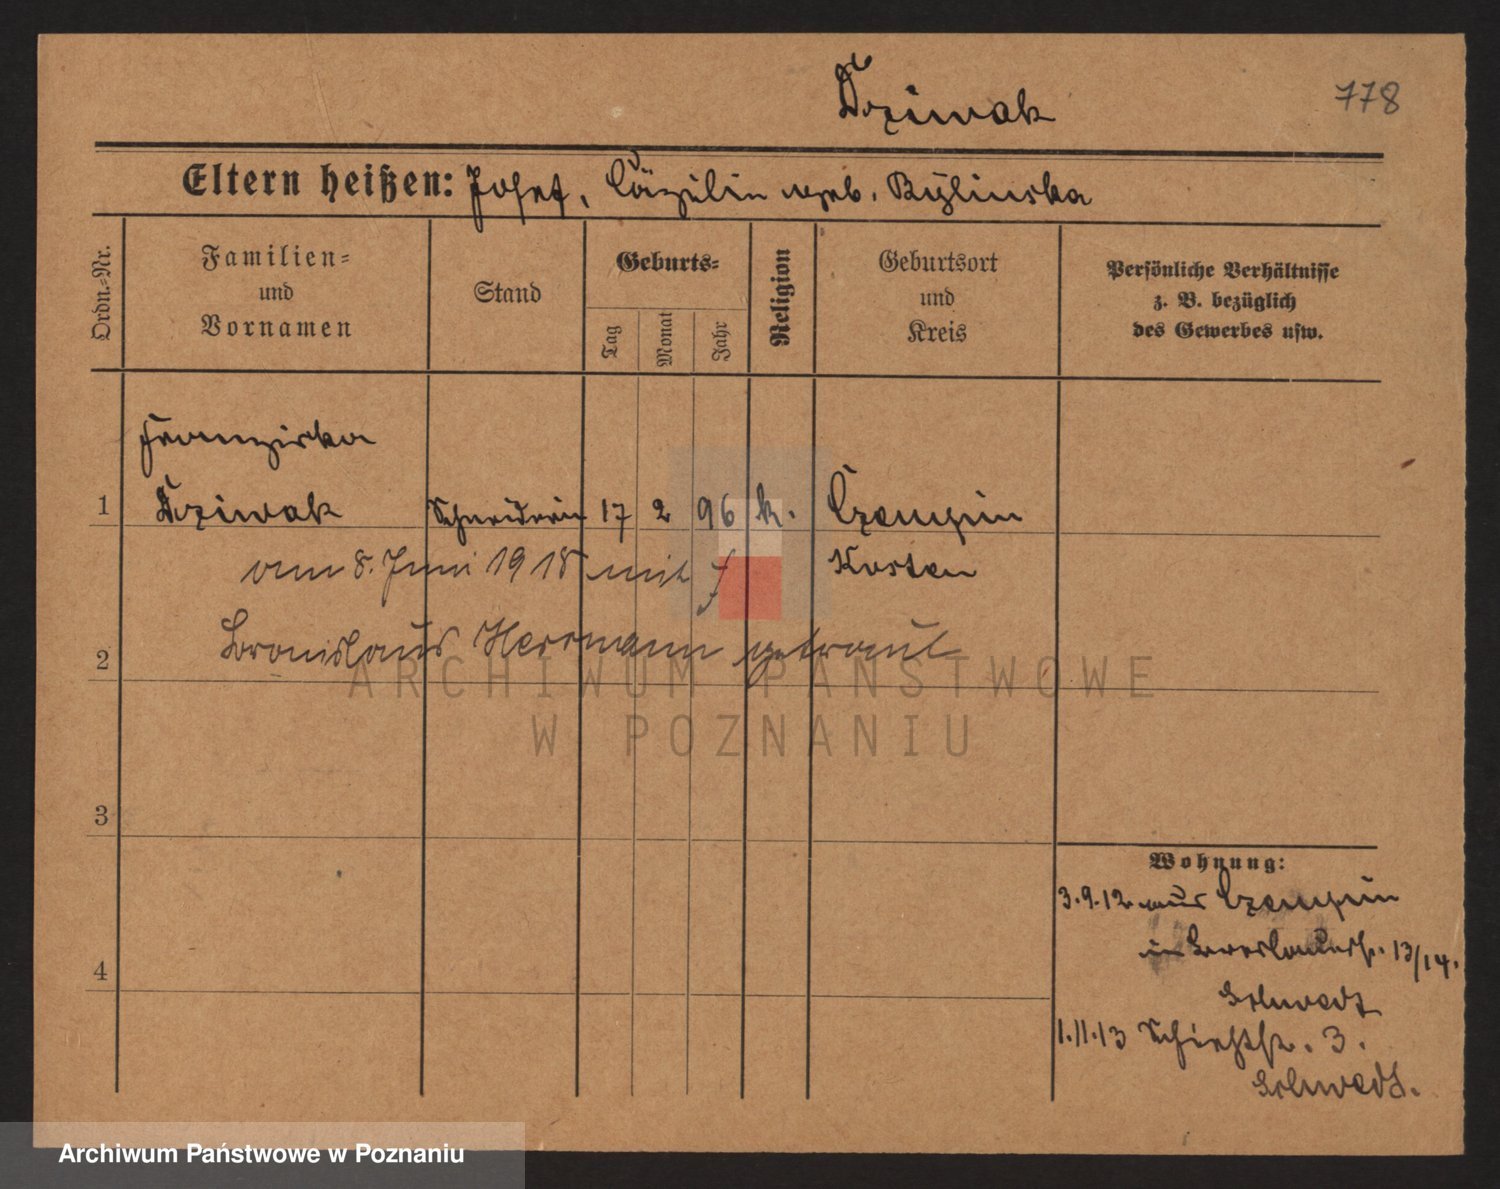 Dziwak
778
Eltern heißen: Josef, Cäzilin geb. Bylinska
Ordn.-Nr.
Familien-
und
Vornamen
Stand
Geburts-
Tag
Monat
Jahr
Religion
Geburtsort
und
Kreis
Persönliche Verhältnisse
z. B. bezüglich
des Gewerbes usw.
Franziska
1 Dziwak Schneiderin 17 2 96 k. Czempin
am 8. Juni 1918 mit Kosten
Bronislaus Herrmann getraut
2
ARCHIWUM PAŃSTWOWE
W POZNANIU
3
Wohnung:
3.9.12 aus Czempin
in 13/14.
4
1.11.13 Schießstr. 3.
Archiwum Państwowe w Poznaniu